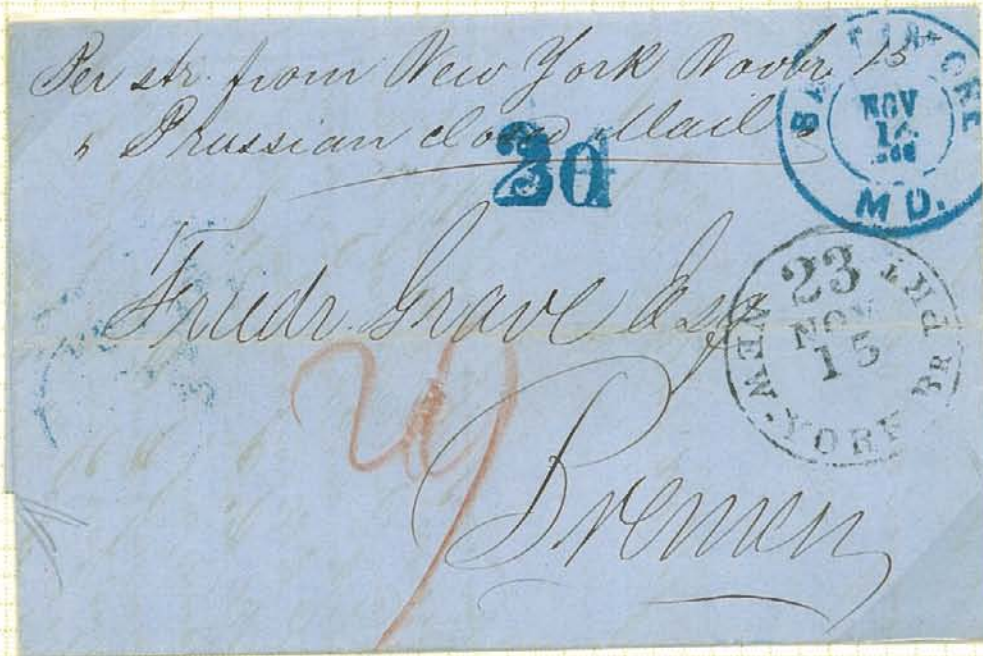 Per str. from New York Novbr. 15
" Prussian closed Mail "
BALTIMORE MD.
NOV
14
30
Friedr. Grave Esqr
NEW-YORK BR PKT
23
NOV
15
Bremen